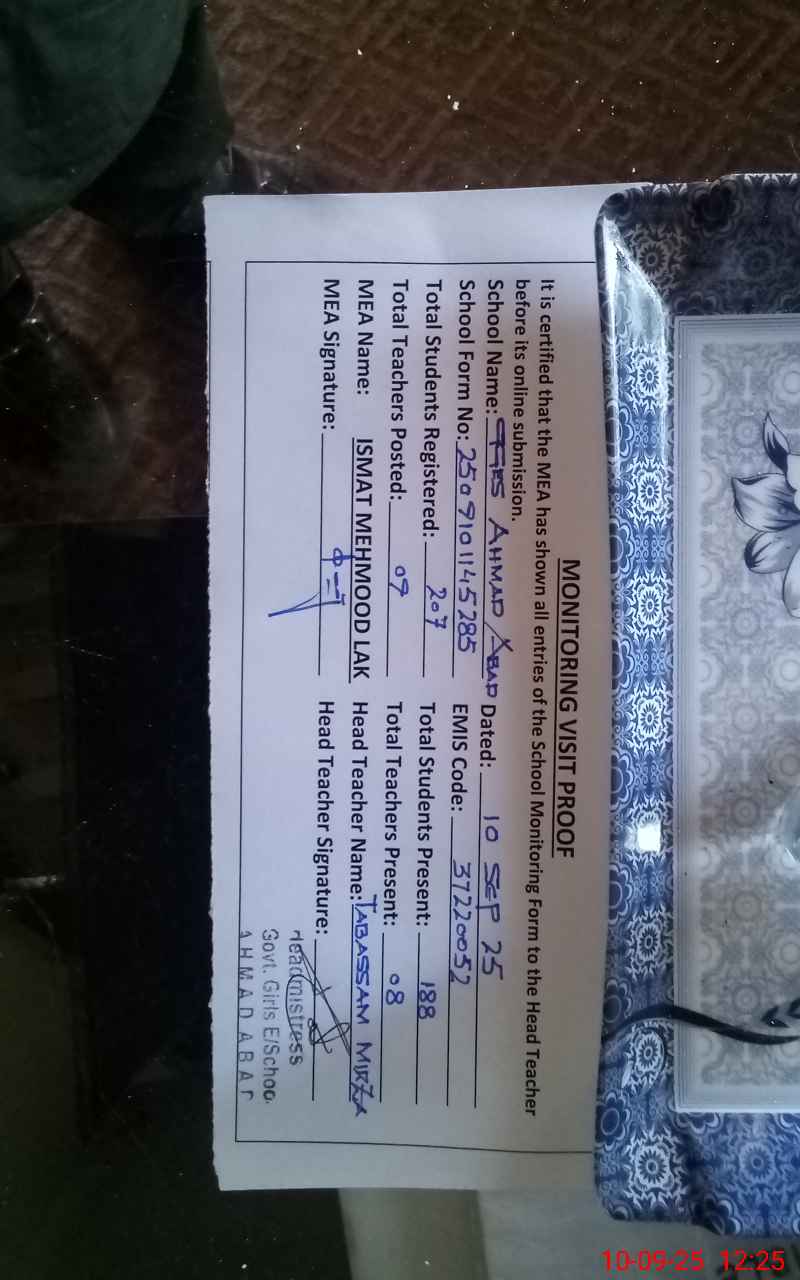 MONITORING VISIT PROOF
It is certified that the MEA has shown all entries of the School Monitoring Form to the Head Teacher
before its online submission.
School Name: GGES AHMAD ABAD Dated: 10 SEP 25
School Form No: 2509101145285 EMIS Code: 37220052
Total Students Registered: 207 Total Students Present: 188
Total Teachers Posted: 09 Total Teachers Present: 08
MEA Name: ISMAT MEHMOOD LAK Head Teacher Name: TABASSAM MIRZA
MEA Signature: Head Teacher Signature:
Headmistress
Govt. Girls E/Schoo
AHMAD ABAD
10-09-25 12:25